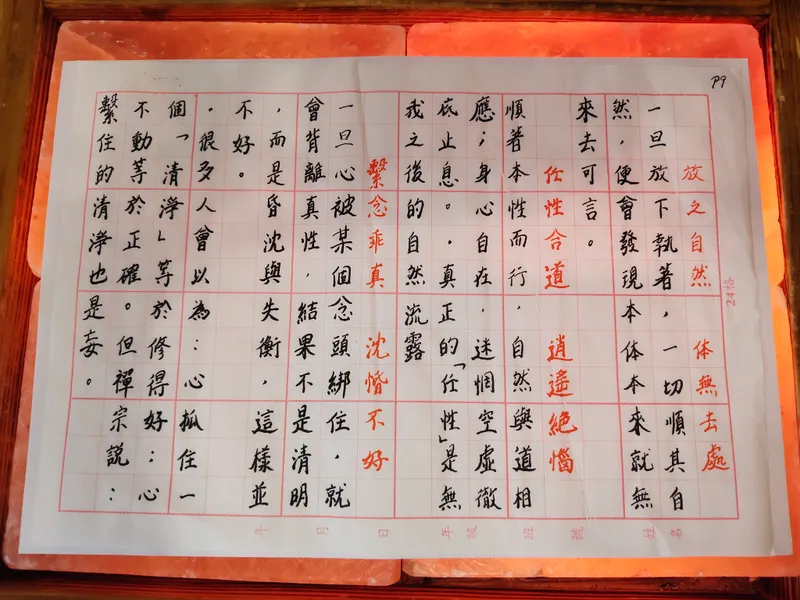 P9
放之自然 体無去處
一旦放下執著，一切順其自
然，便會發現本体本來就無
來去可言。
任性合道 逍遙絕惱
順著本性而行，自然與道相
應；身心自在，迷惘空虛徹
底止息。，真正的「任性」是無
我之後的自然流露
繫念乖真 沈惛不好
一旦心被某個念頭綁住，就
會背離真性，結果不是清明
，而是昏沈與失衡，這樣並
不好。
，很多人會以為：心抓住一
個「清淨」等於修得好：心
不動等於正確。但禪宗說：
繫住的清淨也是妄。
24格
姓名 號 班 級 年 日 月 年